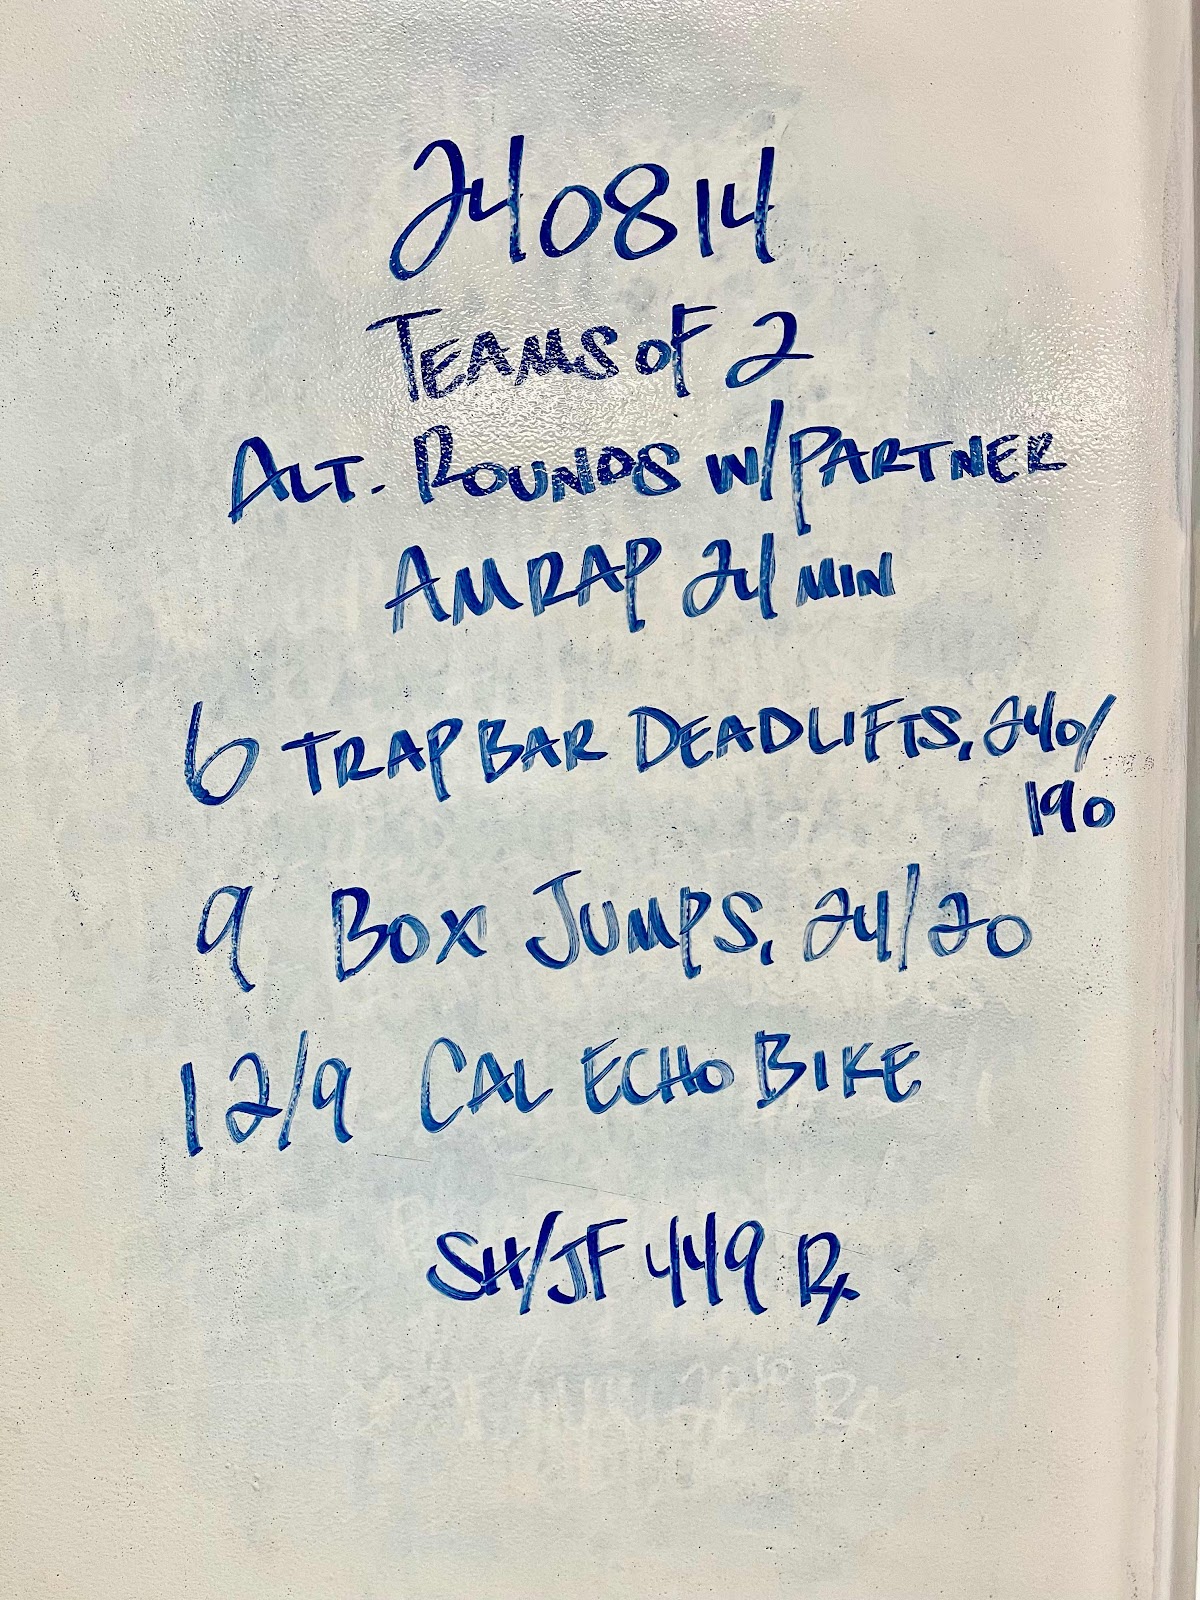 240814
TEAMS OF 2
ALT. ROUNDS W/PARTNER
AMRAP 24 MIN
6 TRAP BAR DEADLIFTS, 240/
190
9 BOX JUMPS, 24/20
12/9 CAL ECHO BIKE
SH/JF 449 Rx